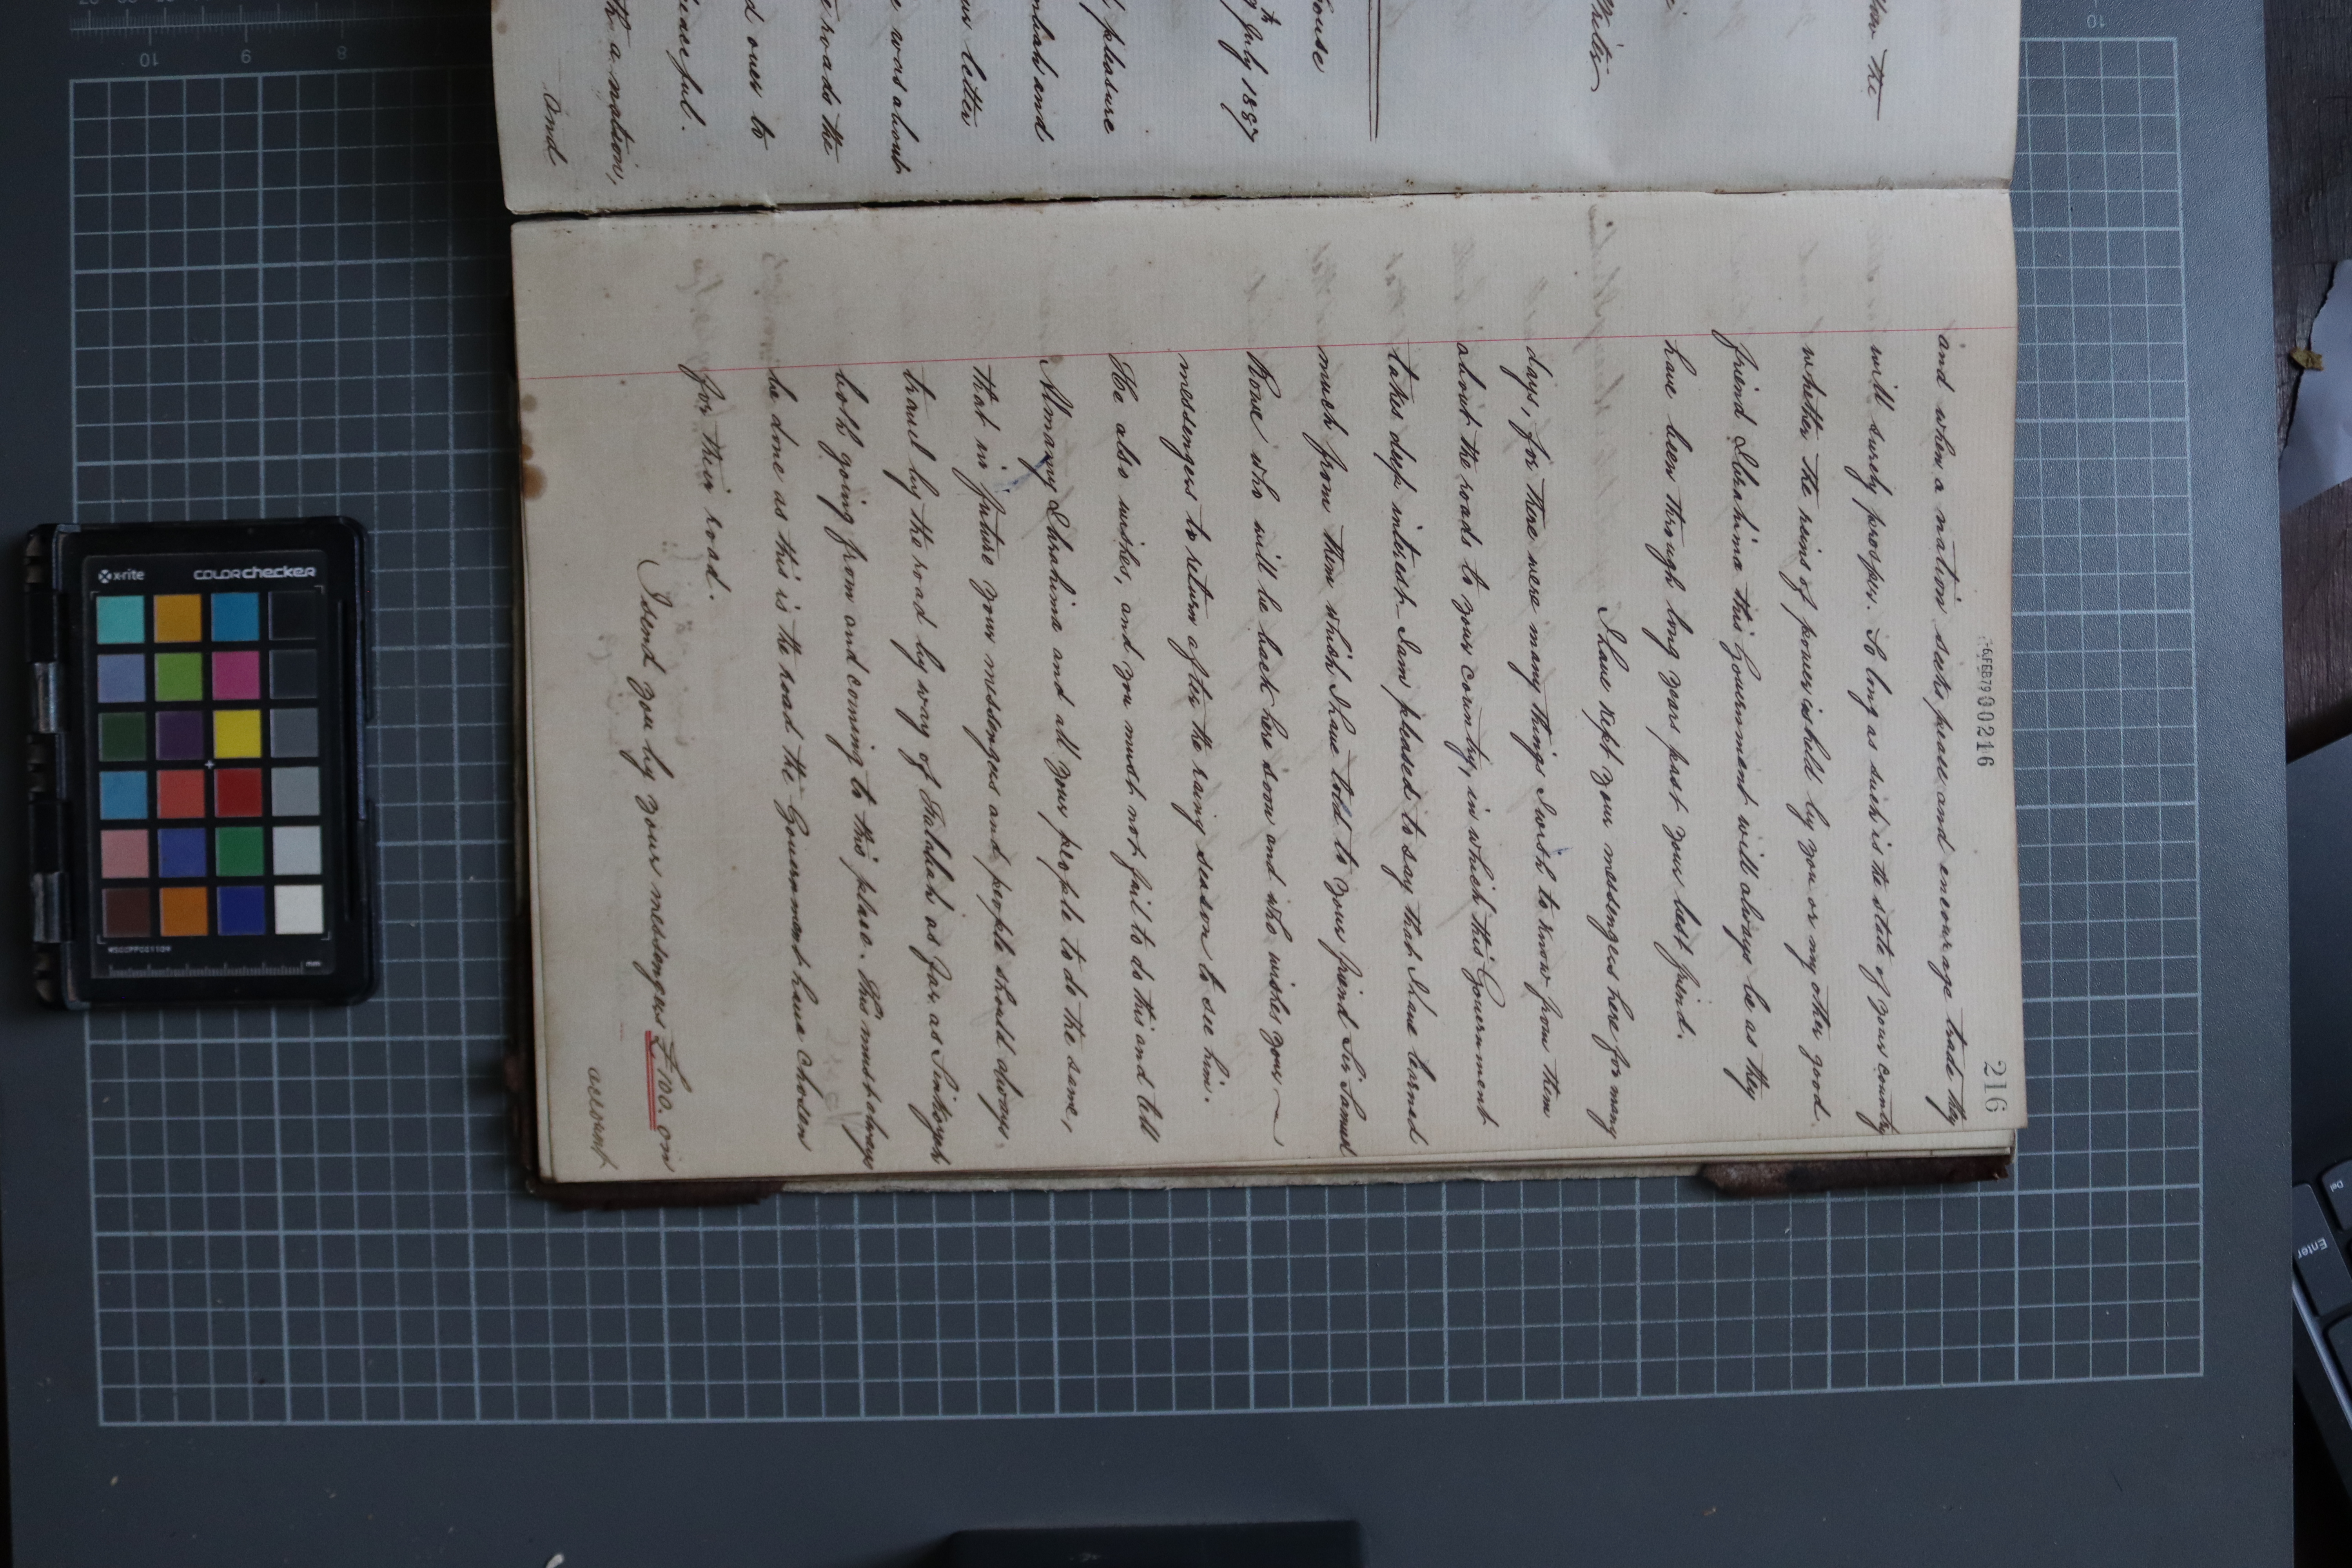 216
-6FEB79000216
and when a nation seeks peace and encourage trade they
will surely prosper. So long as such is the state of your country
whether the reins of power is held by you or my other good
friend Ibrahima this Government will always be as they
have been through long years past your last friend.
I have kept your messengers here for many
days, for there were many things I wish to know from them
about the roads to your country, in which this Government
takes deep interest_ I am pleased to say that I have learned
much from them which I have told to your friend Sir Samuel
Rowe who will be back here soon and who wishes your
messengers to return after the rainy season to see him.
He also wishes, and you must not fail to do this and tell
Almamy Ibrahima and all your people to do the same,
that in future your messengers and people should always
travel by the road by way of Falabah as far as
both going from and coming to this place. This must always
be done as this is the road the Government have chosen
for their road.
I send you by your messengers £100. on
account
how the
House
July 1887
pleasure
and
letter
was about
roads the
d over to
peaceful.
a nation,
And
x-rite
colorchecker
mm
10
9
8
10
Enter
Del